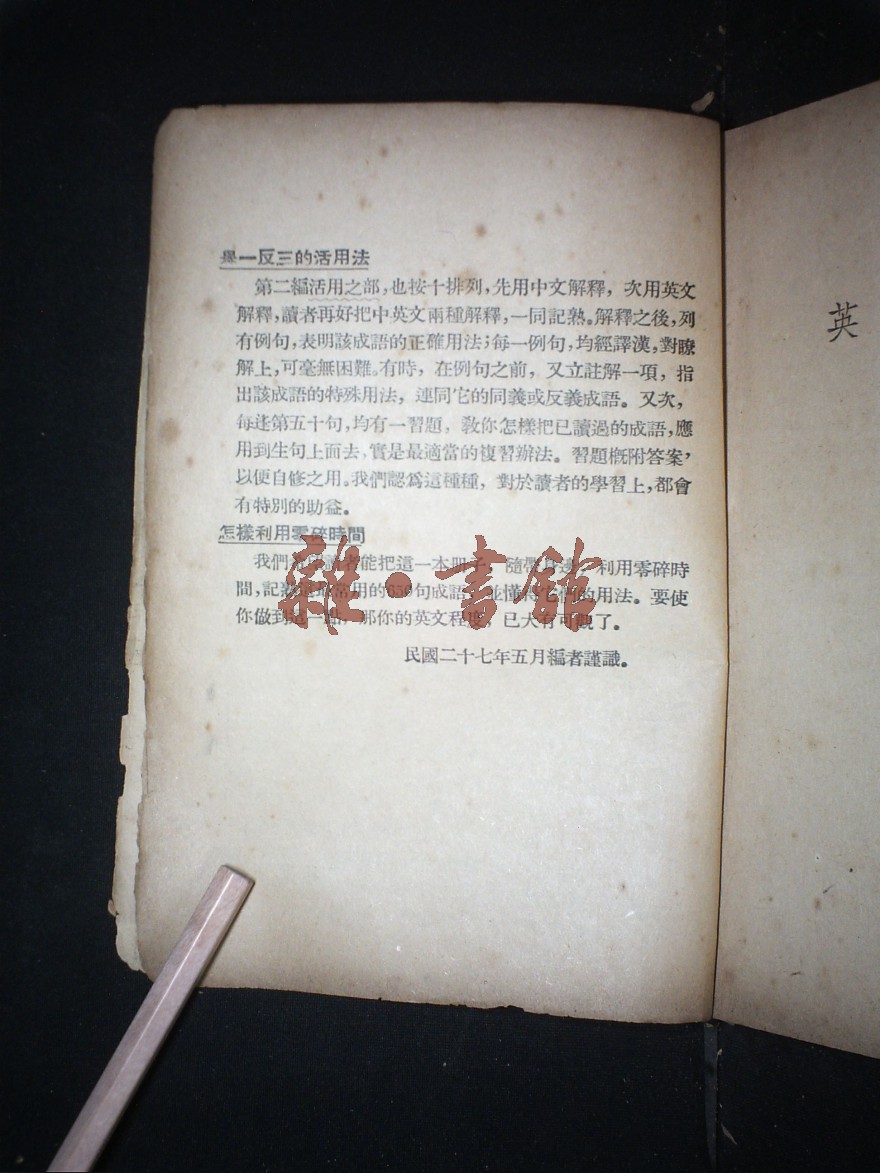 舉一反三的活用法
第二編活用之部，也按十排列，先用中文解釋，次用英文
解釋，讀者再好把中英文兩種解釋，一同記熟。解釋之後，列
有例句，表明該成語的正確用法；每一例句，均經譯漢，對瞭
解上，可毫無困難。有時，在例句之前，又立註解一項，指
出該成語的特殊用法，連同它的同義或反義成語。又次，
每逢第五十句，均有一習題，教你怎樣把已讀過的成語，應
用到生句上面去，實是最適當的複習辦法。習題概附答案，
以便自修之用。我們認爲這種種，對於讀者的學習上，都會
有特別的助益。
怎樣利用零碎時間
我們 讀者能把這一本冊子，隨 身 利用零碎時
間，記 這最常用的650句成語，並懂得它們的用法。要使
你做到這一點，那你的英文程度，已大有可觀了。
民國二十七年五月編者謹識。
雜·書館
英